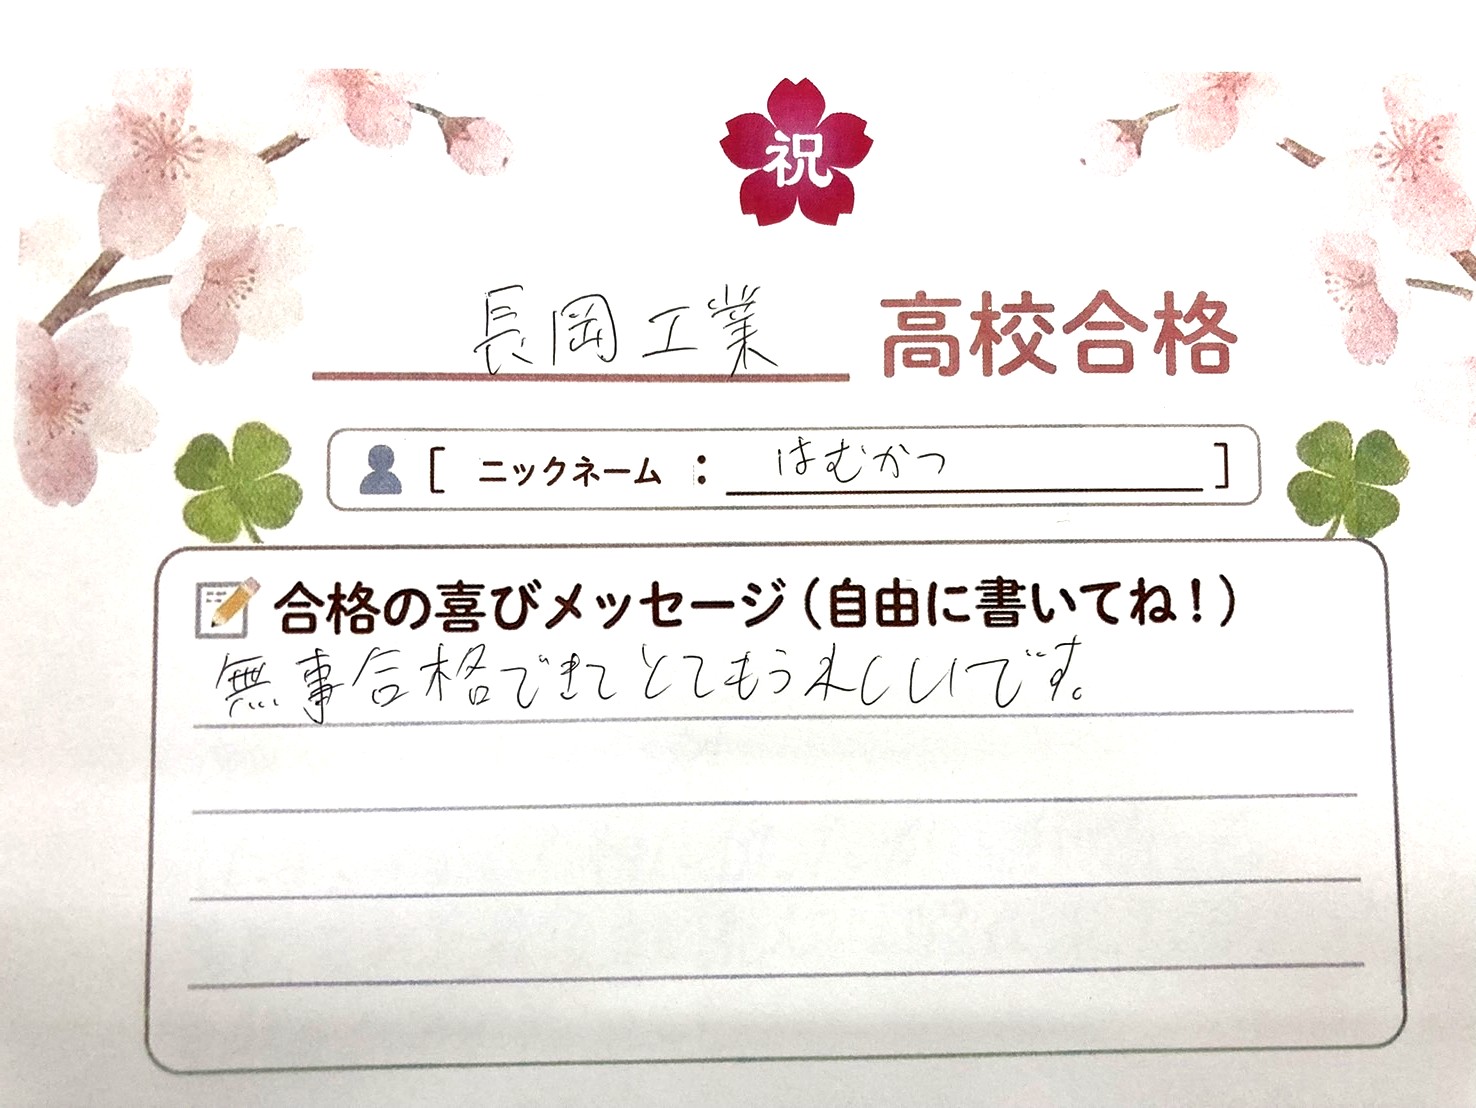 祝
長岡工業 高校合格
[ ニックネーム : はむかつ ]
合格の喜びメッセージ(自由に書いてね!)
無事合格できてとてもうれしいです。